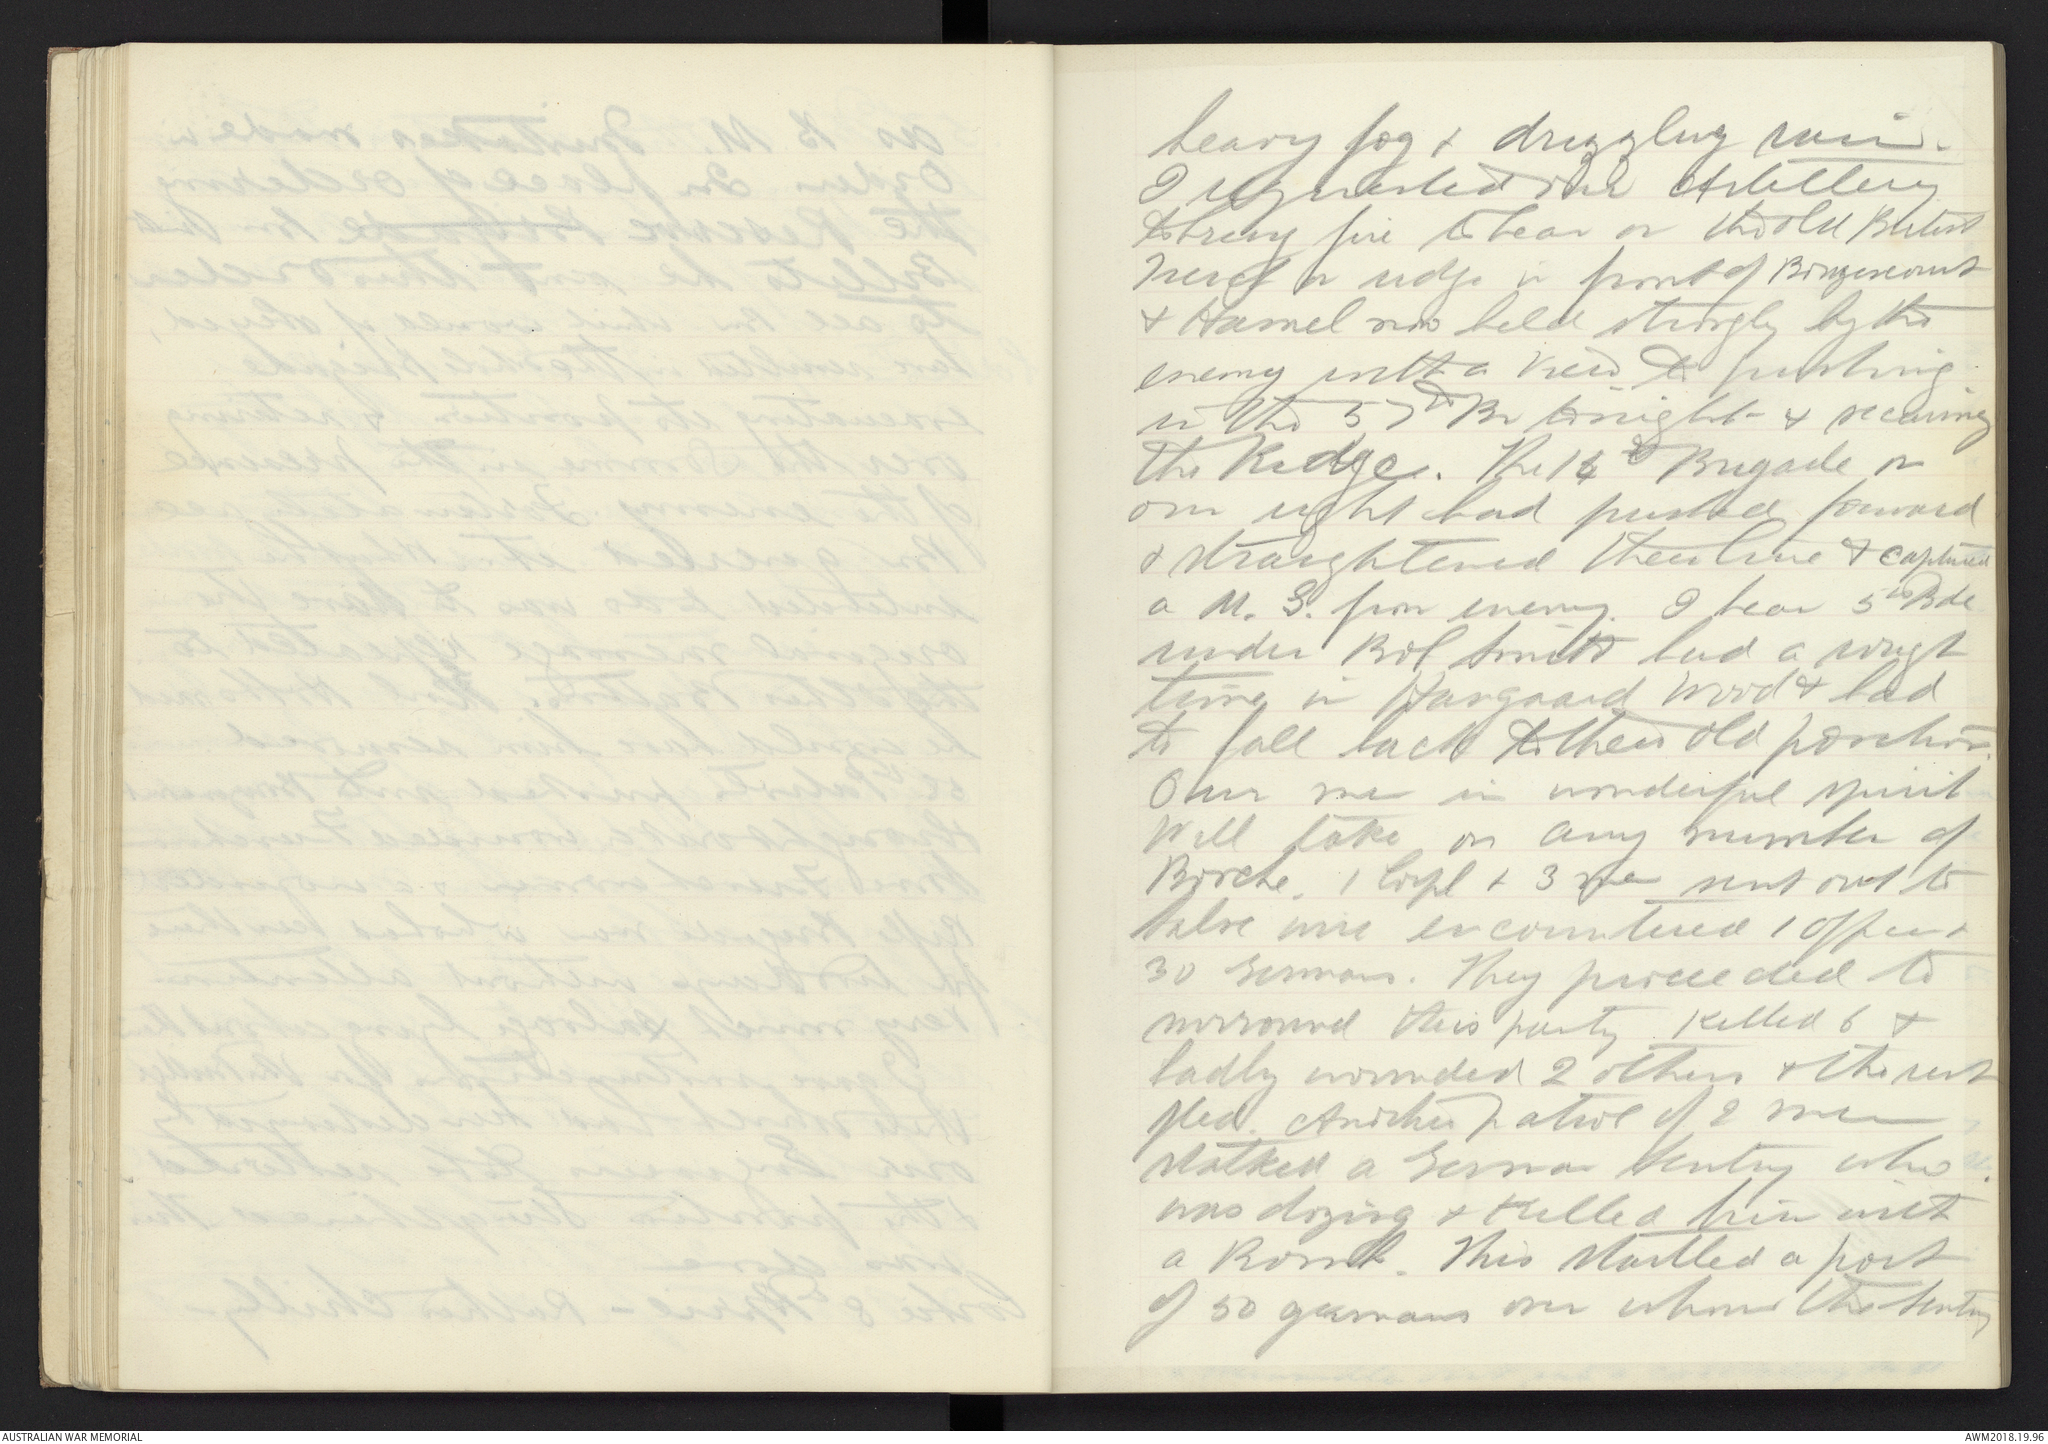 heavy fog & drizzling rain.
I requested our Artillery
to bring fire to bear on the old British
trench on ridge in front of Bouzencourt
& Hamel now held strongly by the
enemy with a view to pushing
in the 57th Bn tonight & securing
the Ridge. The 14th Brigade on
our right had pushed forward
& straightened their line & captured
a M.G. from enemy. I hear 5th Bde
under Bob Smith had a rough
time in Hangaard Wood & had
to fall back to their old position.
Our men in wonderful spirit
Will take on any number of
Boche. 1 Corpl & 3 men sent out to
salve wire encountered 1 officer &
30 Germans. They proceeded to
surround this party killed 6 &
badly wounded 2 others & the rest
fled. Another patrol of 2 men
stalked a German sentry who
was dozing & killed him with
a Bomb. This startled a post
of 50 germans over whom the sentry
AUSTRALIAN WAR MEMORIAL
AWM2018.19.96